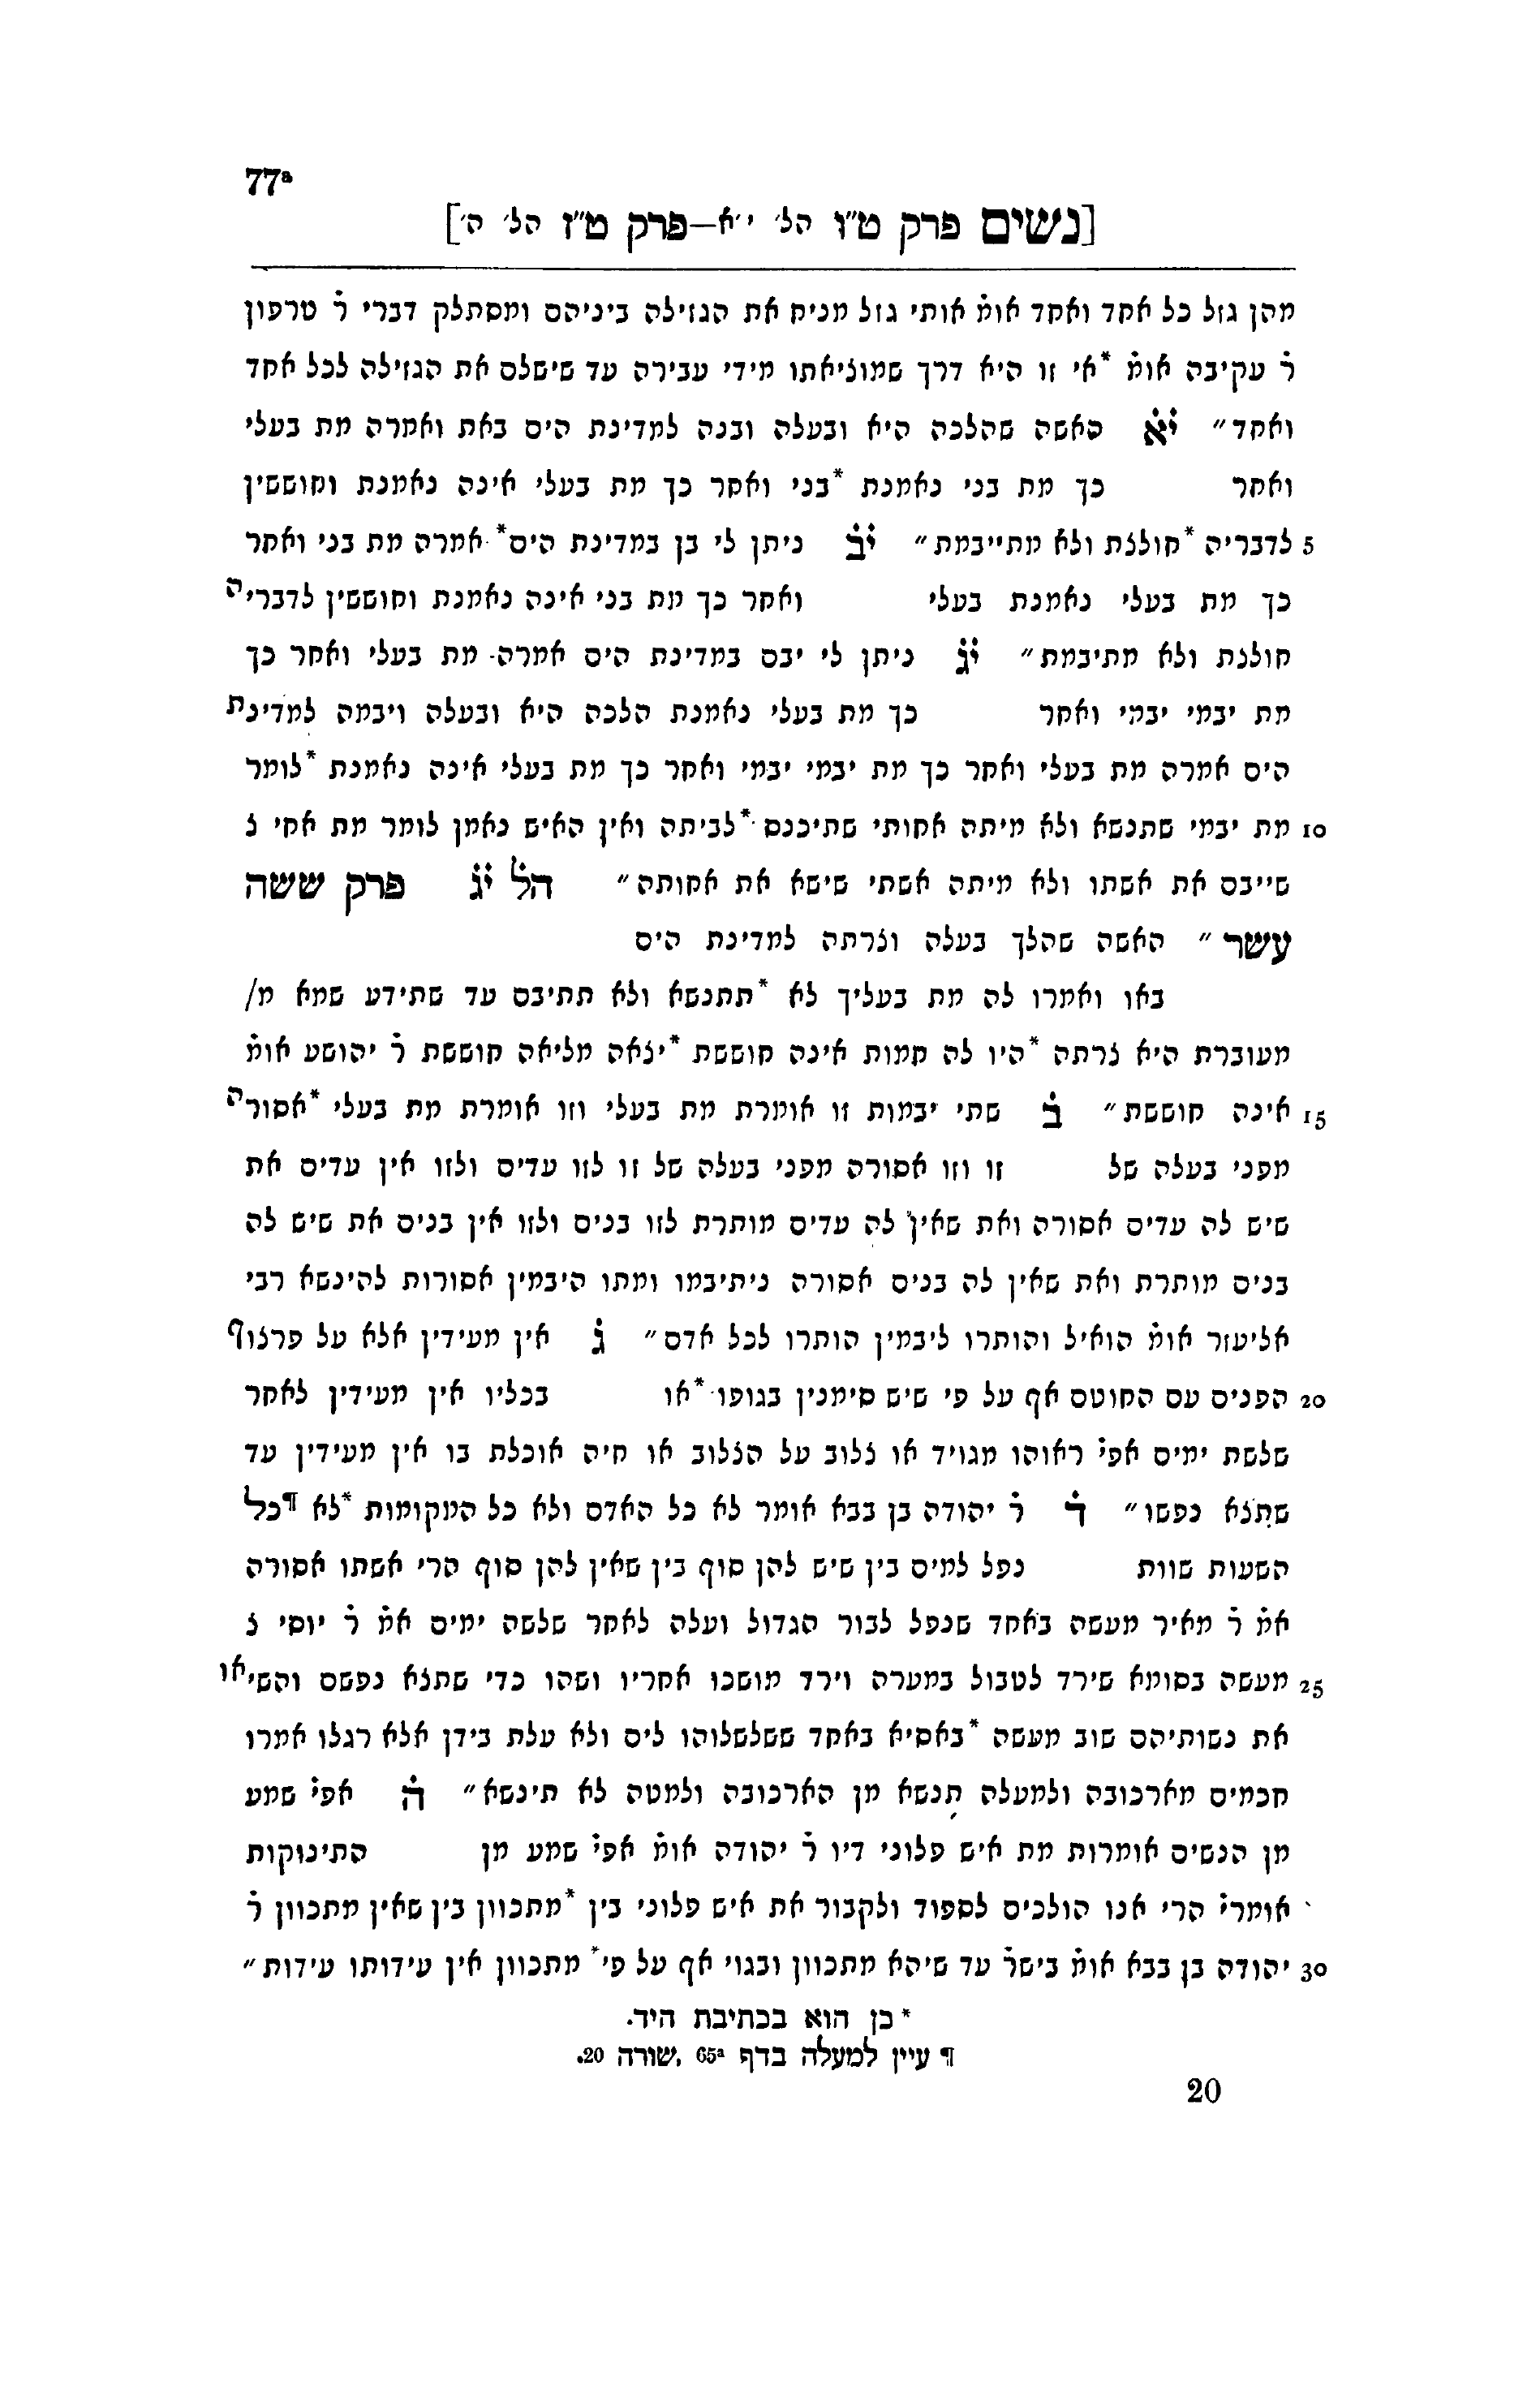 77ª
[נשים פרק ט״ו הל׳ י׳׳א—פרק ט״ז הל׳ ה׳]
מהן גזל כל אחד ואחד אומ̇ אותי גזל מניח את הגזילה ביניהם ומסתלק דברי ר̇ טרפון
ר̇ עקיבה אומ̇ *אי זו היא דרך שמוציאתו מידי עבירה עד שישלם את הגזילה לכל אחד
ואחד״ י̇א̇ האשה שהלכה היא ובעלה ובנה למדינת הים באת ואמרה מת בעלי
ואחר כך מת בני נאמנת *בני ואחר כך מת בעלי אינה נאמנת וחוששין
5 לדבריה *חולצת ולא מתייבמת״ י̇ב̇ ניתן לי בן במדינת הים* אמרה מת בני ואחר
כך מת בעלי נאמנת בעלי ואחר כך מת בני אינה נאמנת וחוששין לדבריה
חולצת ולא מתיבמת״ י̇ג̇ ניתן לי יבם במדינת הים אמרה מת בעלי ואחר כך
מת יבמי יבמי ואחר כך מת בעלי נאמנת הלכה היא ובעלה ויבמה למדינת
הים אמרה מת בעלי ואחר כך מת יבמי יבמי ואחר כך מת בעלי אינה נאמנת *לומר
10 מת יבמי שתנשא ולא מיתה אחותי שתיכנס *לביתה ואין האיש נאמן לומר מת אחי צ
שייבם את אשתו ולא מיתה אשתי שישא את אחותה״ הל̇ י̇ג̇ פרק ששה
עשר״ האשה שהלך בעלה וצרתה למדינת הים
באו ואמרו לה מת בעליך לא *תתנשא ולא תתיבם עד שתידע שמא מ/
מעוברת היא צרתה *היו לה חמות אינה חוששת *יצאה מליאה חוששת ר̇ יהושע אומ̇
15 אינה חוששת״ ב̇ שתי יבמות זו אומרת מת בעלי וזו אומרת מת בעלי *אסורה
מפני בעלה של זו וזו אסורה מפני בעלה של זו לזו עדים ולזו אין עדים את
שיש לה עדים אסורה ואת שאין לה עדים מותרת לזו בנים ולזו אין בנים את שיש לה
בנים מותרת ואת שאין לה בנים אסורה ניתיבמו ומתו היבמין אסורות להינשא רבי
אליעזר אומ̇ הואיל והותרו ליבמין הותרו לכל אדם״ ג̇ אין מעידין אלא על פרצוף
20 הפנים עם החוטם אף על פי שיש סימנין בגופו *או בכליו אין מעידין לאחר
שלשת ימים אפי̇ ראוהו מגויד או צלוב על הצלוב או חיה אוכלת בו אין מעידין עד
שתצא נפשו״ ד̇ ר̇ יהודה בן בבא אומר לא כל האדם ולא כל המקומות *לא ¶כל
השעות שוות נפל למים בין שיש להן סוף בין שאין להן סוף הרי אשתו אסורה
אמ̇ ר̇ מאיר מעשה באחד שנפל לבור הגדול ועלה לאחר שלשה ימים אמ̇ ר̇ יוסי צ
25 מעשה בסומא שירד לטבול במערה וירד מושכו אחריו ושהו כדי שתצא נפשם והשיאו
את נשותיהם שוב מעשה *באסיא באחד ששלשלוהו לים ולא עלת בידן אלא רגלו אמרו
חכמים מארכובה ולמעלה תנשא מן הארכובה ולמטה לא תינשא״ ה̇ אפי̇ שמע
מן הנשים אומרות מת איש פלוני דיו ר̇ יהודה אומ̇ אפי̇ שמע מן התינוקות
אומרי̇ הרי אנו הולכים לספוד ולקבור את איש פלוני בין *מתכוון בין שאין מתכוון ר̇
30 יהודה בן בבא אומ̇ בישר̇ עד שיהא מתכוון ובגוי אף על פי* מתכוון אין עידותו עידות״
* כן הוא בכתיבת היד.
¶ עיין למעלה בדף 65ª, שורה 20.
20